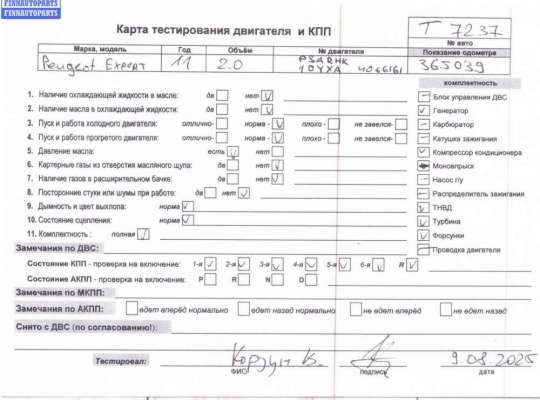 FINNAUTOPARTS
FINNAUTOPARTS
Карта тестирования двигателя и КПП
T 7237
№ авто
Марка, модель Год Объём № двигателя Показание одометре
Peugeot Expert 11 2.0 PSARHK 10YXA 4066161 365039
комплектность
1. Наличие охлаждающей жидкости в масле: да нет V
2. Наличие масла в охлаждающей жидкости: да нет V
3. Пуск и работа холодного двигателя: отлично- норма - V плохо - не завелся-
4. Пуск и работа прогретого двигателя: отлично- норма - V плохо - не завелся-
5. Давление масла: есть V нет
6. Картерные газы из отверстия масляного щупа: да нет V
7. Наличие газов в расширительном бачке: да нет V
8. Посторонние стуки или шумы при работе: да нет V
9. Дымность и цвет выхлопа: норма V
10. Состояние сцепления: норма V
11. Комплектность : полная V
Блок управления ДВС
Генератор
Карбюратор
Катушка зажигания
Компрессор кондиционера
Моновпрыск
Насос гу
Распределитель зажигания
ТНВД
Турбина
Форсунки
Проводка двигателя
Замечания по ДВС:
Состояние КПП - проверка на включение: 1-я V 2-я V 3-я V 4-я V 5-я V 6-я V R V
Состояние АКПП - проверка на включение: P R N D
Замечания по МКПП:
Замечания по АКПП: едет вперёд нормально едет назад нормально не едет вперёд не едет назад
Снято с ДВС (по согласованию!):
Тестировал: Корзун В. 9.08.2025
ФИО подпись дата